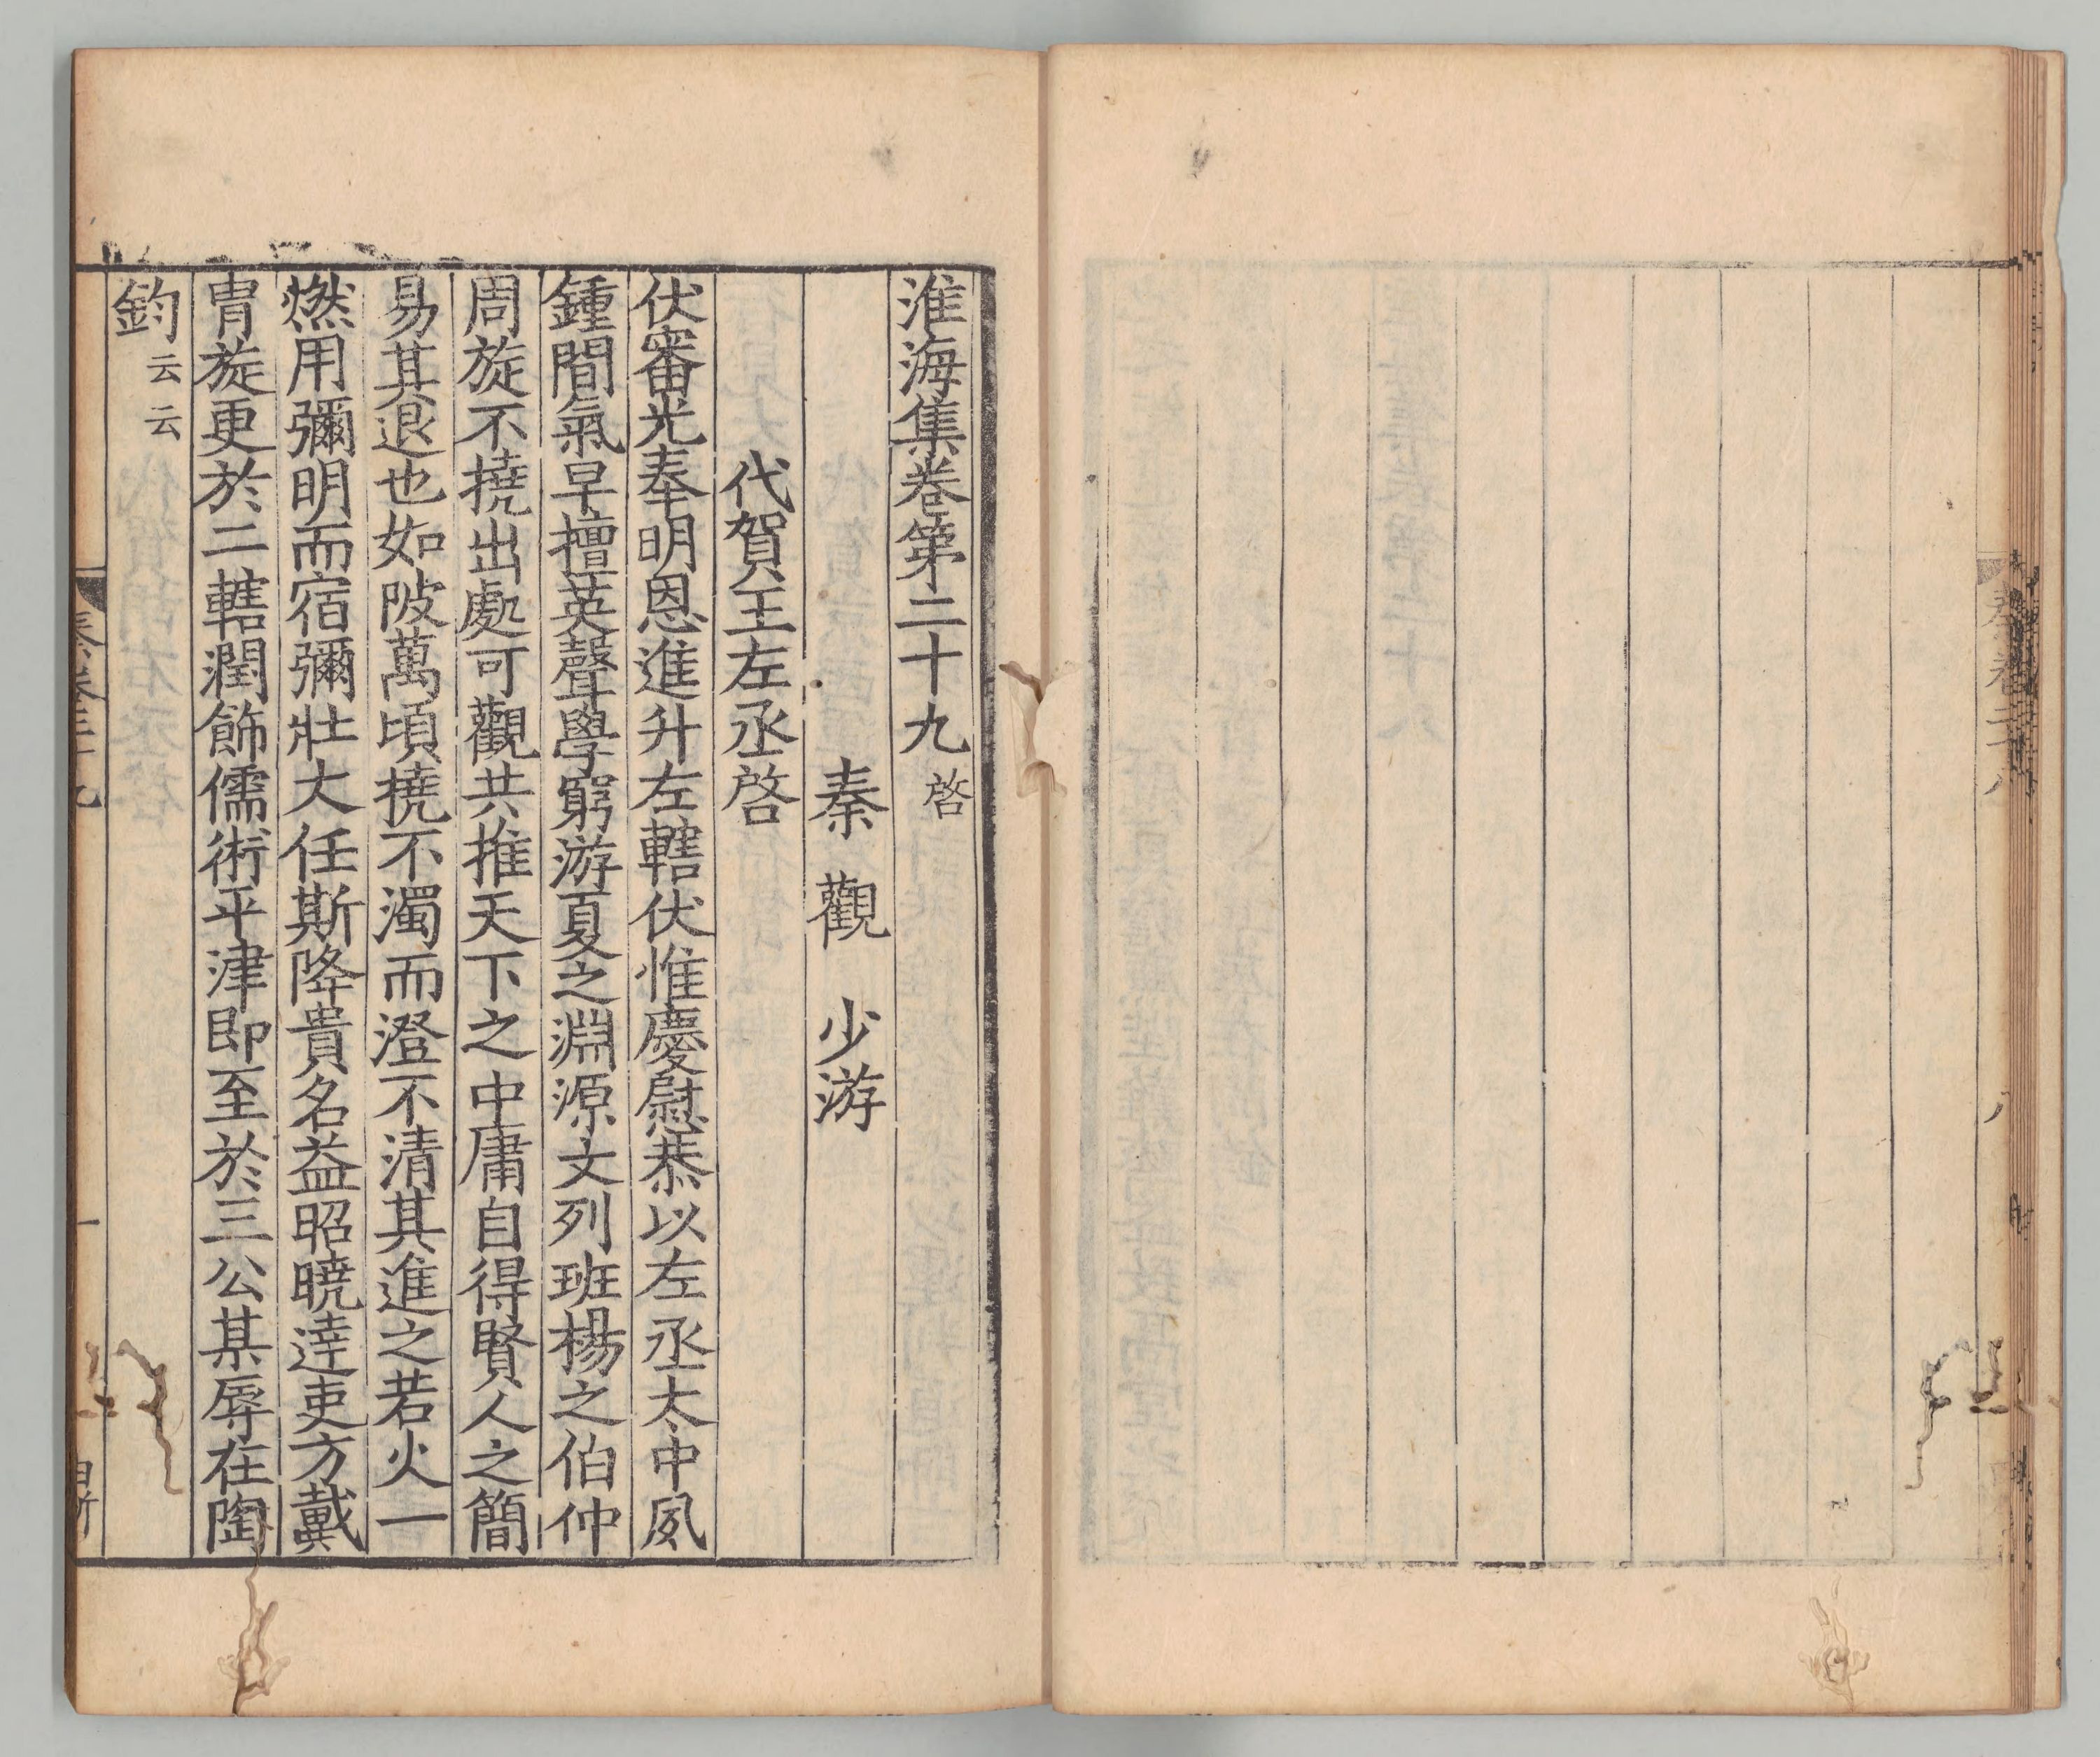 淮海集卷第二十九 啓
秦觀 少游
代賀王左丞啓
伏審光奉明恩進升左轄伏惟慶慰恭以左丞太中夙
鍾間氣早擅英聲學窮游夏之淵源文列班楊之伯仲
周旋不撓出處可觀共推天下之中庸自得賢人之簡
易其退也如陂萬頃撓不濁而澄不清其進之若火一
燃用彌明而宿彌壯大任斯降貴名益昭曉逹吏方戴
胄旋更於二轄潤飾儒術平津即至於三公某辱在陶
鈞云云
秦卷二十九
一
秦卷二十八
八